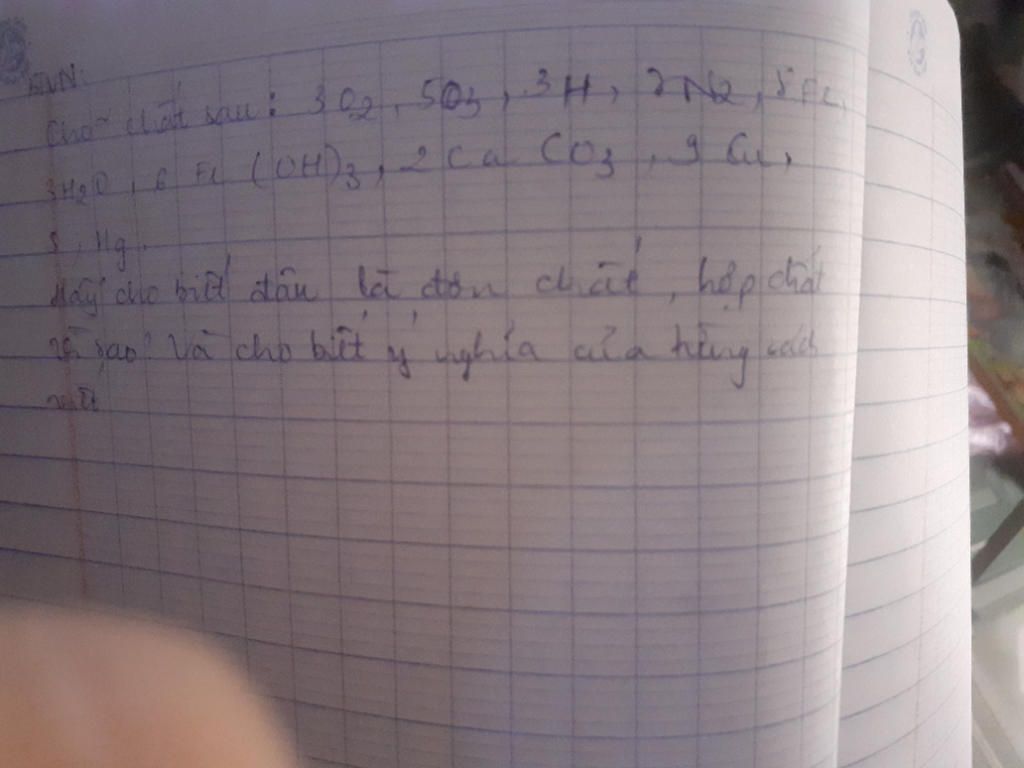 BTVN:
Cho chất sau: 3O2, 5O3, 3H, 7N2, 5Fe,
3H2O, 6 Fe (OH)3, 2 Ca CO3, 9 Cu,
5, Hg.
Hãy cho biết đâu là đơn chất, hợp chất
vì sao? Và cho biết ý nghĩa của từng cách
viết